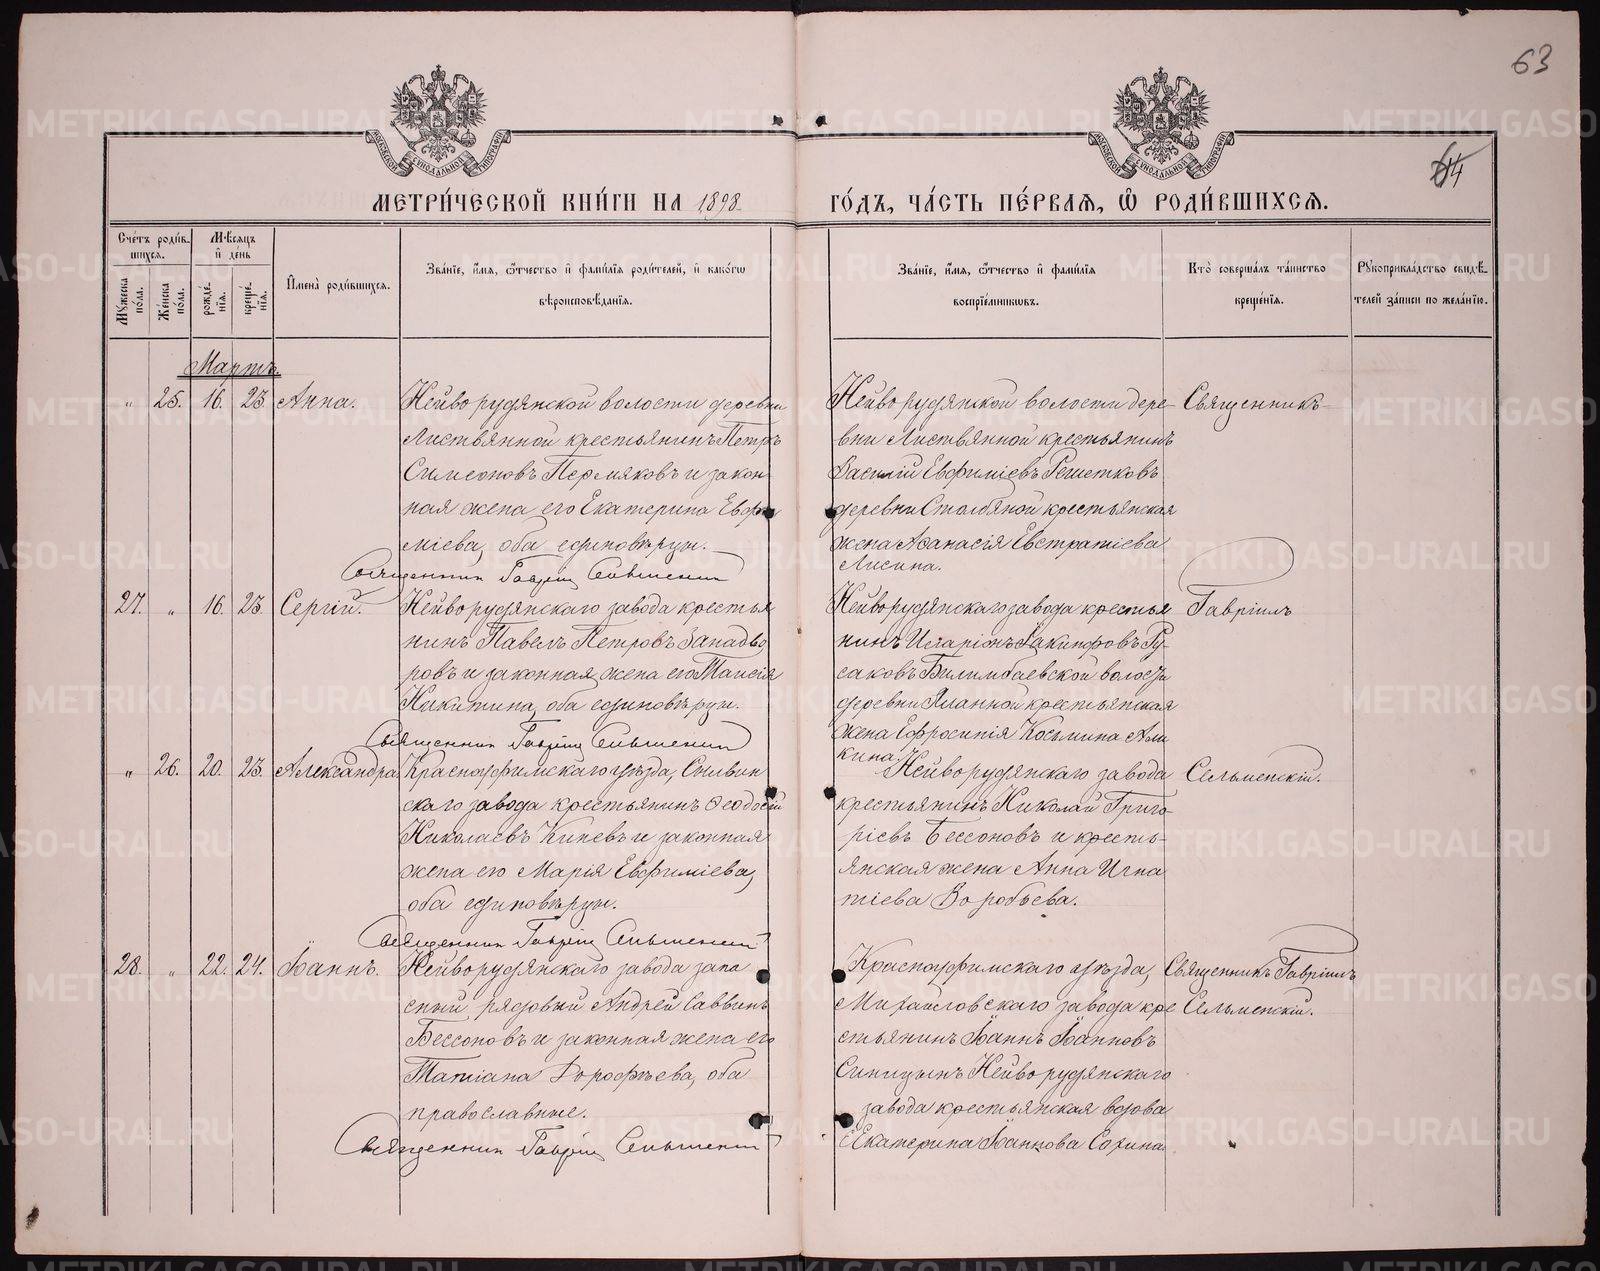 63
64
МЕТРИ́ЧЕСКОЙ КНИ́ГИ НА 1898
ГО́ДЪ, ЧА́СТЬ ПЕ́РВАѦ, Ѽ РОДИ́ВШИХСѦ.
Сче́тъ роди́в-
шихся.
Мꙋ́жеска по́ла.
Же́нска по́ла.
Мѣ́сяцъ и҆ де́нь
рожде́нїя.
креще́нїя.
И҆мена̀ роди́вшихся.
Зва́нїе, и҆́мя, ѻ҆́тчество и҆ фами́лїя роди́телей, и҆ како́гѡ
вѣроисповѣ́данїя.
Зва́нїе, и҆́мя, ѻ҆́тчество и҆ фами́лїя
воспрїе́мниковъ.
Кто̀ соверша́лъ та́инство
креще́нїя.
Рꙋкоприкла́дство свидѣ́-
телей за́писи по жела́нїю.
Мартъ.
„ 25. 16. 23. Анна.
Нейво рудянской волости деревни
Листвянной крестьянинъ Петръ
Симеоновъ Пермяковъ и закон-
ная жена его Екатерина Евфи
міева, оба единовѣрцы.
Священникъ Гавріилъ Сельменскій
Нейво рудянской волости дере-
вни Листвянной крестьянинъ
Василій Евфиміевъ Решетковъ
деревни Столбяной крестьянская
жена Аѳанасія Евстратіева
Лисина.
Священникъ
27. „ 16. 23. Сергій.
Нейворудянскаго завода крестья
нинъ Павелъ Петровъ Западво
ровъ и законная жена его Таисія
Никитина, оба единовѣрцы.
Священникъ Гавріилъ Сельменскій
Нейворудянскаго завода крестья
нинъ Иларіонъ Іакинфовъ Ру-
саковъ Билимбаевской волости
деревни Яланной крестьянская
жена Ефросинія Косьмина Али
кина.
Гавріилъ
„ 26. 20. 23. Александра
Красноуфимскаго уѣзда, Сылвин
скаго завода крестьянинъ Ѳеодосій
Николаевъ Киневъ и законная
жена его Марія Евфиміева,
оба единовѣрцы.
Священникъ Гавріилъ Сельменскій
Нейворудянскаго завода
крестьянинъ Николай Григо-
ріевъ Бессоновъ и кресть-
янская жена Анна Игна
тіева Воробьева.
Сельменскій.
28. „ 22. 24. Іоаннъ.
Нейворудянскаго завода запа
сный рядовый Андрей Саввинъ
Бессоновъ и законная жена его
Татіана Дорофѣева, оба
православные.
Священникъ Гавріилъ Сельменскій
Красноуфимскаго уѣзда,
Михайловскаго завода кре
стьянинъ Іоаннъ Іоанновъ
Синицынъ Нейво рудянскаго
завода крестьянская вдова
Екатерина Іоаннова Сохина.
Священникъ Гавріилъ
Сельменскій.
METRIKI.GASO-URAL.RU